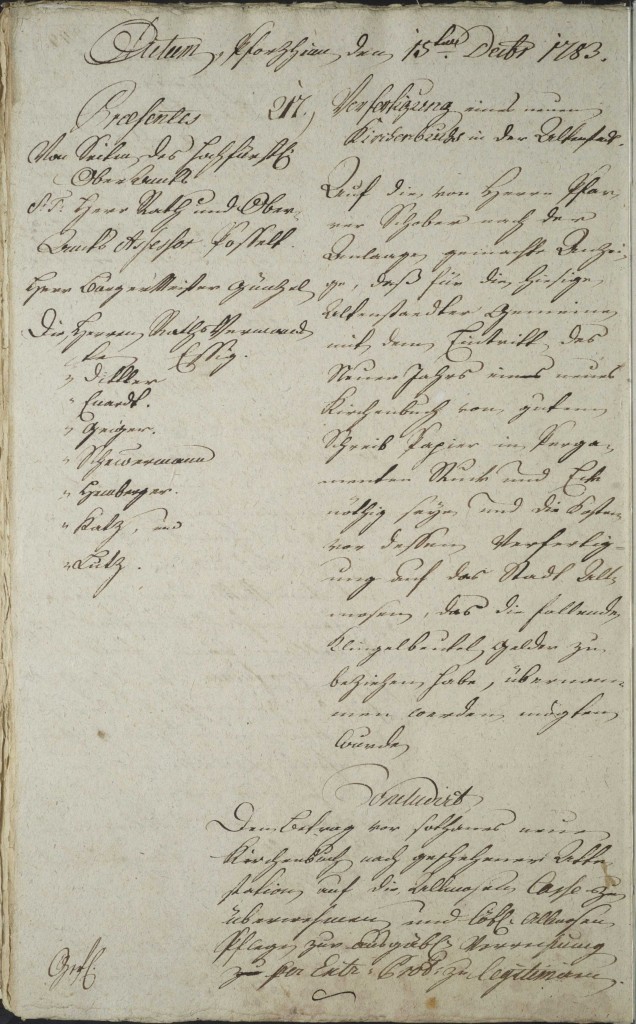 Actum, Pforzheim den 15ten Decbr 1783.
Praesentes
Von Seiten des Hochfürstl.
Ober Amts
S. T. Herr Rath und Ober-
Amts Assessor Posselt.
Herr Burgermeister Günzel
Die Herren Raths Verwand-
ten Essig.
" Dittler
" Enardt.
" Geiger.
" Scheuermann
" Hunberger.
" Katz, und
" Lutz.
217.) Verfertigung eines neuen
Kirchenbuchs in der Altenstadt.
Auf die von Herrn Pfar-
rer Schober nach der
Anlaage gemachte Anzei-
ge, daß für die hiesige
Altenstaedter Gemeine
mit dem Eintritt des
Neuen Jahrs ein neues
Kirchenbuch von gutem
Schreib Papier in Perga-
menten Ruck und Eck
nöthig seye, und die Kosten
vor dessen Verfertig-
ung auf das Stadt All-
mosen, das die fallende
Klingelbeutel Gelder zu
beziehen habe, übernom-
men werden mögten
wurde
Concludirt
Den Betrag vor sothanes neue
Kirchenbuch nach geschehener Atte-
station auf die Allmosen Casse zu
übernehmen und löbl. Allmosen
Pflege zur Ausgabs Verrechnung
per Extr. Prot. zu legitimiren.